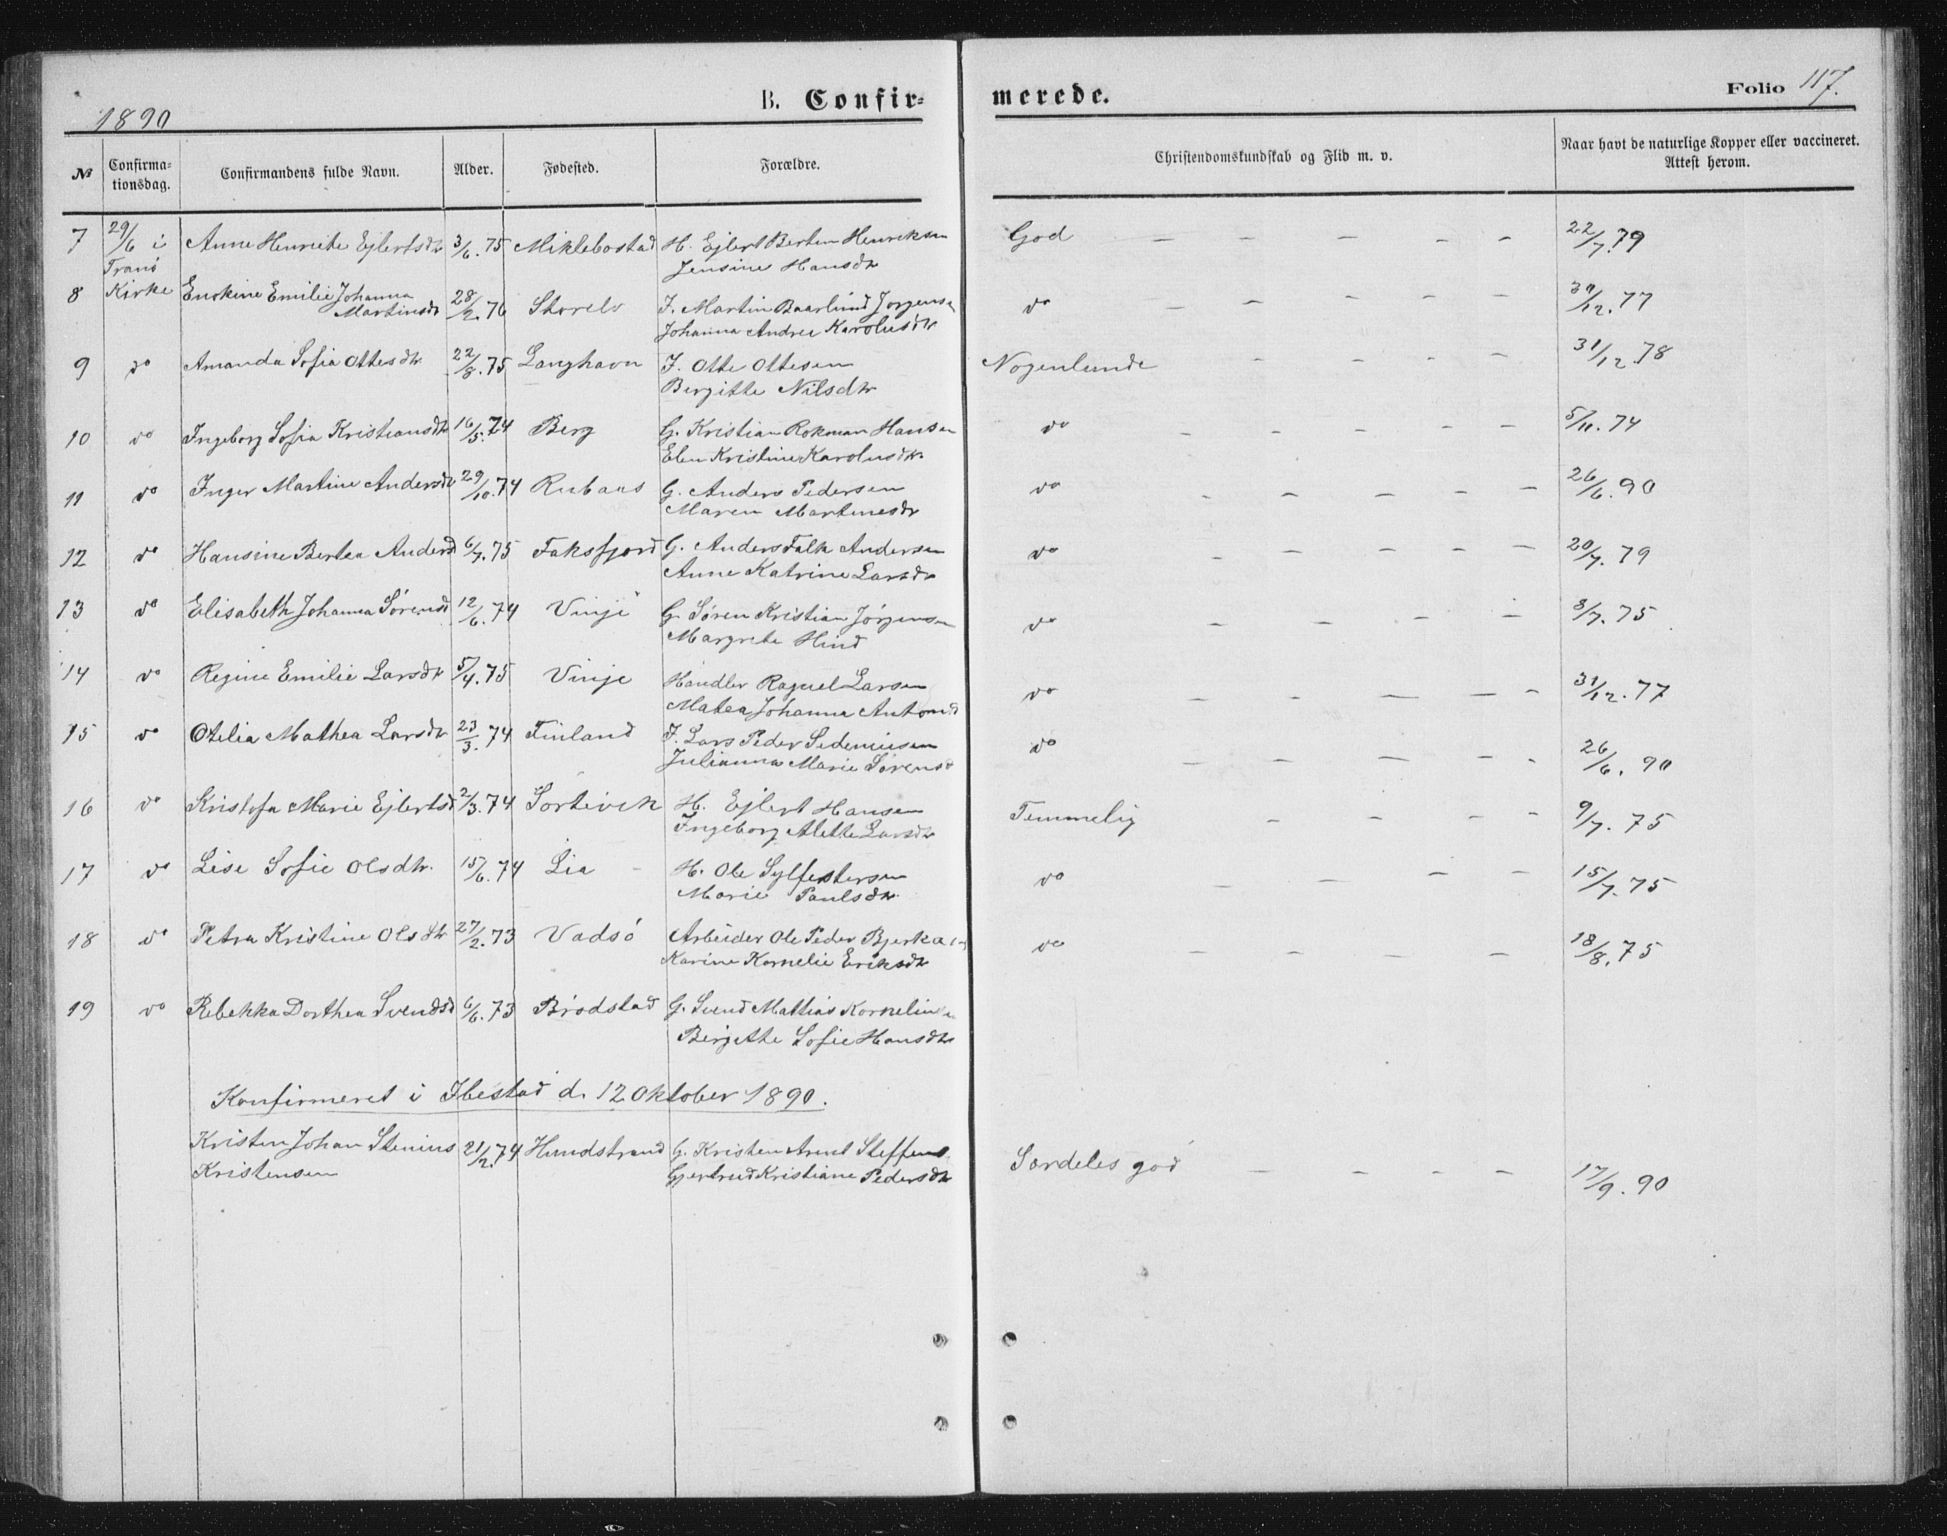 1890
B. Confir=
merede.
Folio 117.
№ Confirma-tionsdag. Confirmandens fulde Navn. Alder. Fødested. Forældre. Christendomskundskab og Flid m. v. Naar havt de naturlige Kopper eller vaccineret. Attest herom.
7 29/6 i Anne Henriette Ejlertsdtr 3/6.75 Miklebostad H. Ejlert Berten Henriksen God — — — — — 22/7.79
Tranö Jensine Hansdtr
8 Kirke Enokine Emilie Johanna 28/2.76 Storelv F. Martin Baarlund Jørgensen do — — — — — 30/12.77
Martinsdtr Johanna Andrea Karolusdtr
9 do Amanda Sofia Ottesdtr. 22/8.75 Langhavn F. Otte Ottesen Nogenlunde — — — — 31/12.78
Bergitte Nilsdtr
10 do Ingeborg Sofia Kristiansdtr 16/5.74 Berg G. Kristian Rokman Hansen do — — — — — 5/11.74
Elen Kristine Karolusdtr.
11 do Inger Martine Andersdtr 29/10.74 Rubaas G. Anders Pedersen do — — — — — 26/6.90
Maren Martinesdtr
12 do Hansine Bertea Andersd 6/7.75 Faksfjord G. Anders Falk Andersen do — — — — — 20/7.79
Anne Katrine Larsdtr
13 do Elisabeth Johanna Sørensd 12/6.74 Vinje G. Søren Kristian Jørgensen do — — — — 8/7.75
Margrete Hind
14 do Regine Emilie Larsdtr 5/4.75 Vinje Handler Raguel Larsen do — — — — — 31/12.77
Matea Johanna Antonsd
15 do Otelia Mathea Larsdtr 23/3.74 Finland F. Lars Peder Sideniusen do — — — — — 26/6.90
Julianna Marie Sørensd
16 do Kristofa Marie Ejlertsd 2/3.74 Sortevik H. Ejlert Hansen Temmelig — — — — 9/7.75
Ingeborg Alette Larsdtr
17 do Lise Sofie Olsdtr. 15/6.74 Lia H. Ole Sylfestersen do — — — — 15/7.75
Marie Paulsdtr.
18 do Petra Kristine Olsdtr 27/2.73 Vadsö Arbeider Ole Peder Bjerkaas do — — — — 18/8.75
Karine Kornelie Eriksdtr
19 do Rebekka Dorthea Svendsd 6/6.73 Brödstad G. Svend Mathias Kornelius
Bergitte Sofie Hansdtr
Konfirmeret i Ibestad d. 12 Oktober 1890.
Kristen Johan Stenius 21/2.74 Hundstrand G. Kristen Arent Steffens. Særdeles god — — — — 17/9.90
Kristensen Gjertrud Kristiane Pedersdtr